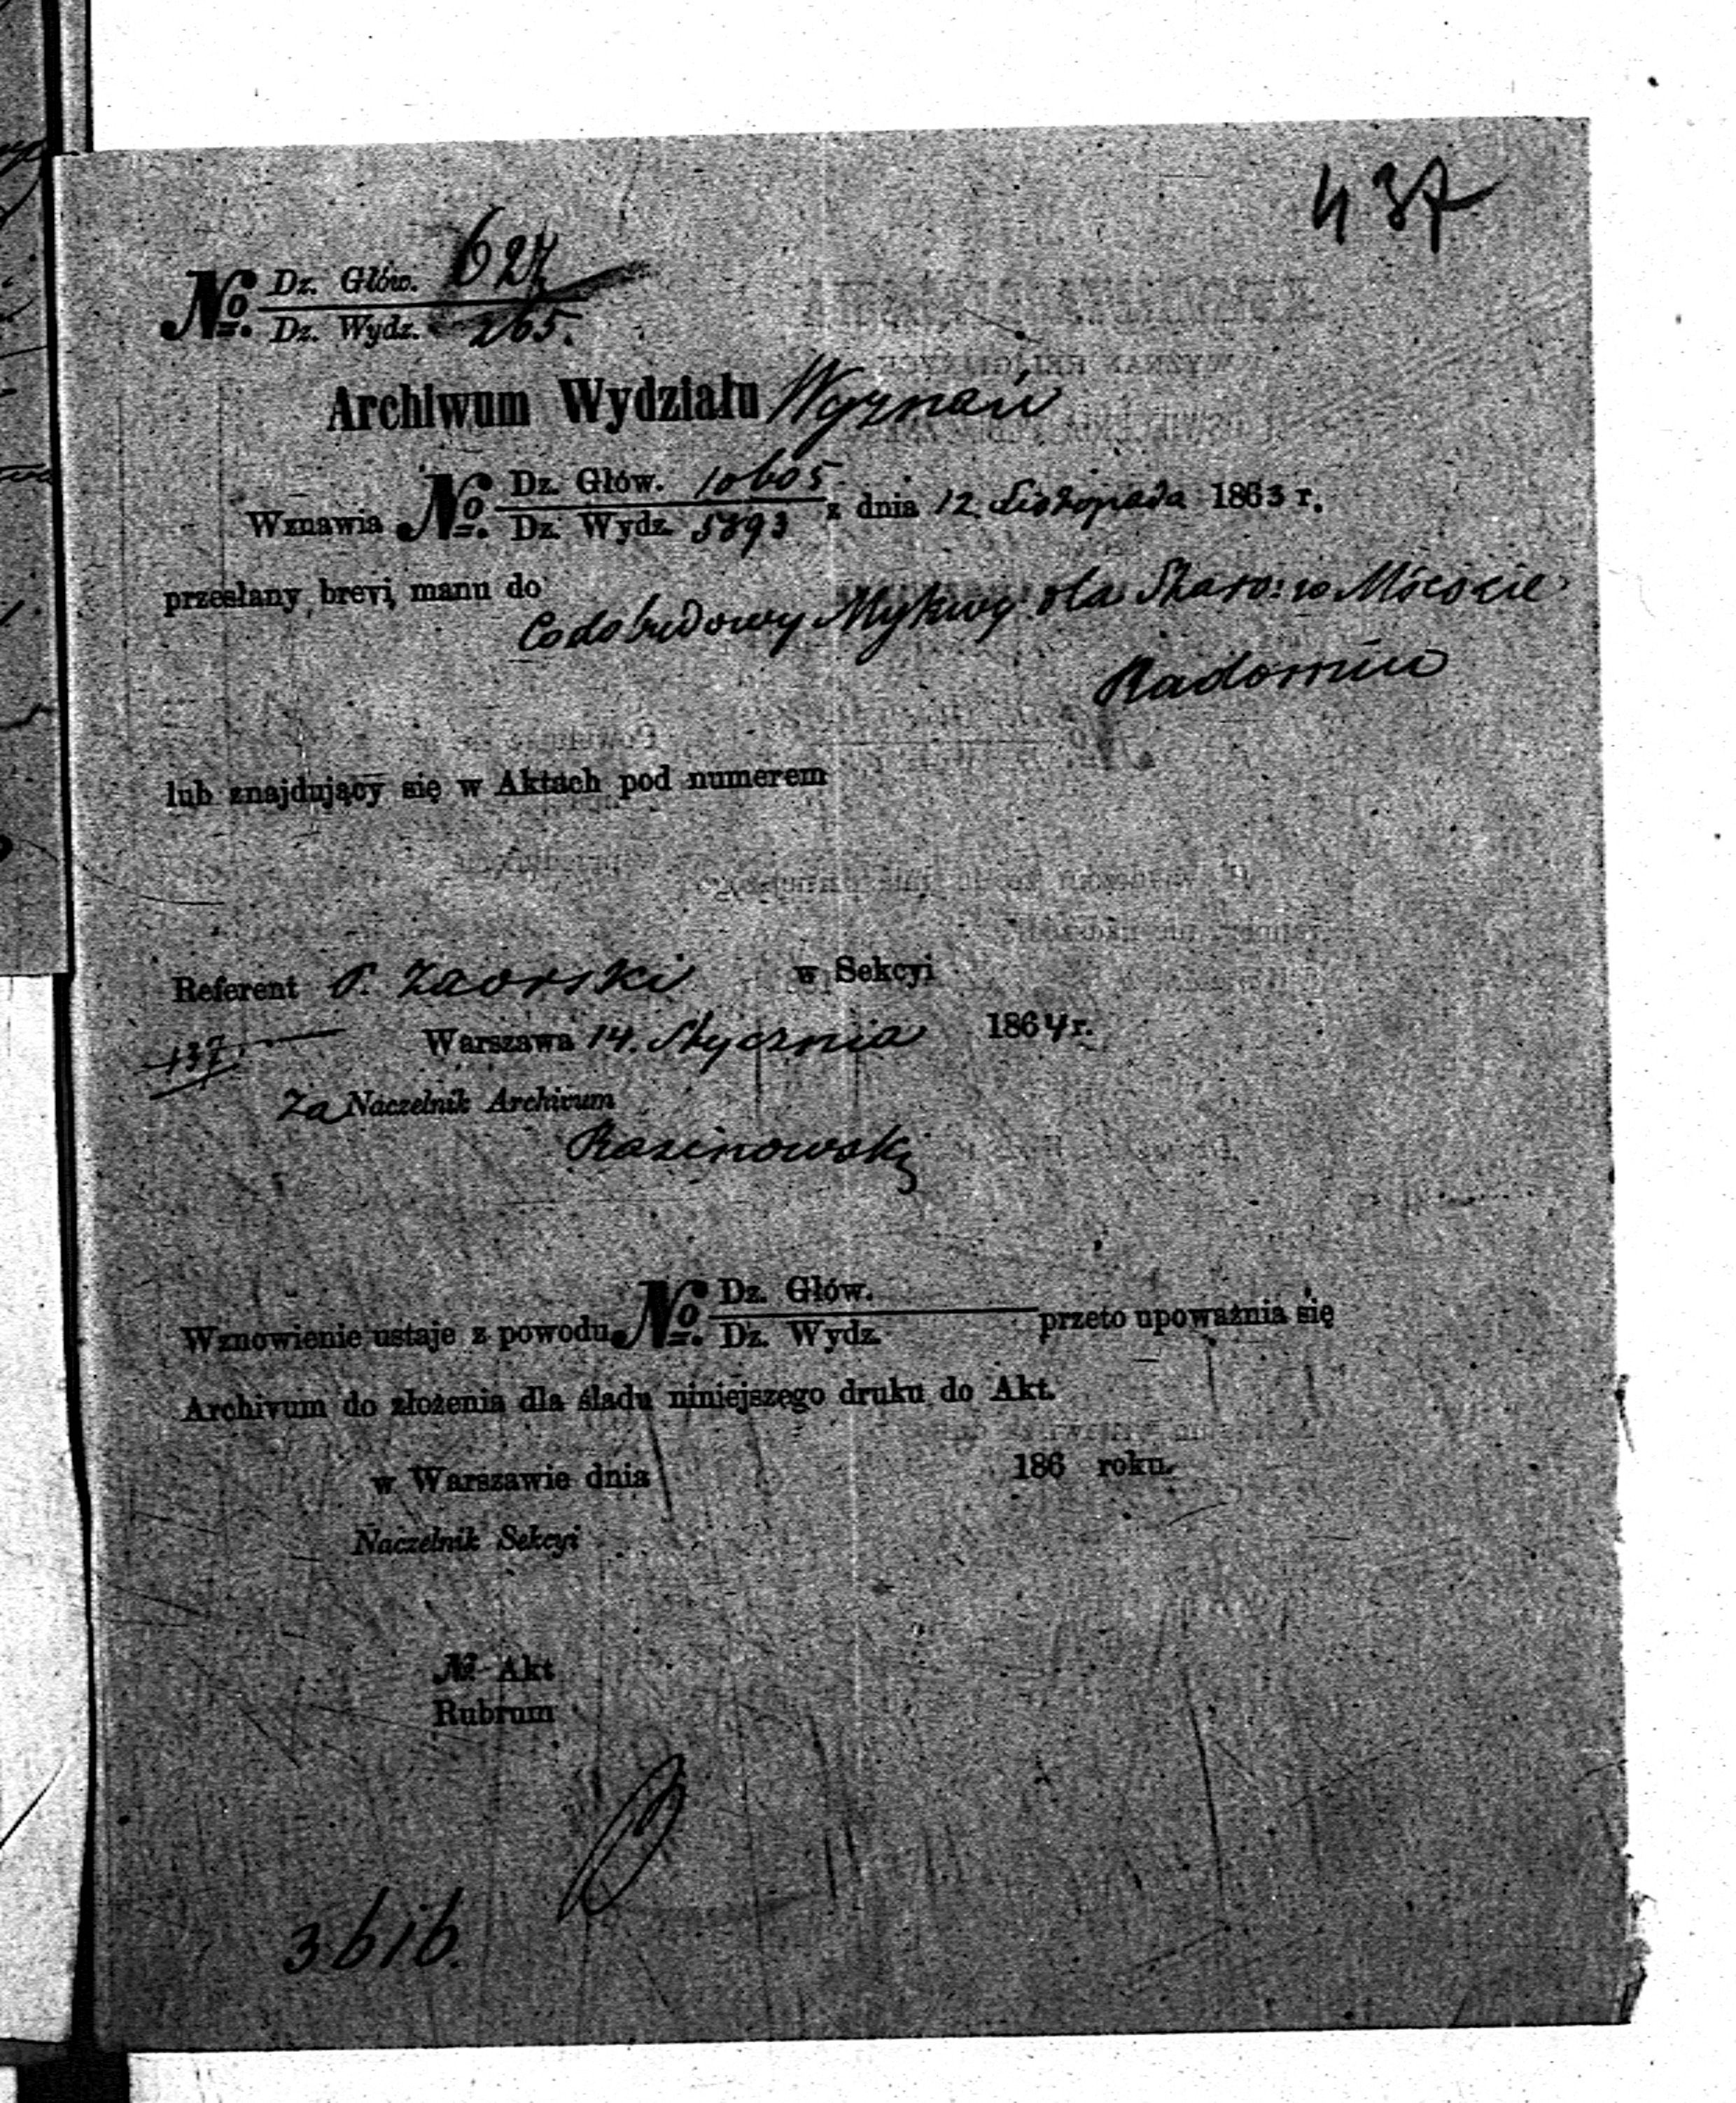 437
№ Dz. Głów. 627
Dz. Wydz. 265.
Archiwum Wydziału Wyznań
Wznawia № Dz. Głów. 10605 z dnia 12 Listopada 1863 r.
Dz. Wydz. 5893
przesłany brevi manu do
Co do budowy Mykwy dla Staro: w Mieście
Radomiu
lub znajdujący się w Aktach pod numerem
Referent P. Zaorski w Sekcyi
137
Warszawa 14. Stycznia 1864 r.
Za Naczelnik Archivum
Rasinowski
Wznowienie ustaje z powodu № Dz. Głów. przeto upoważnia się
Dz. Wydz.
Archivum do złożenia dla śladu niniejszego druku do Akt.
w Warszawie dnia 186 roku.
Naczelnik Sekcyi
№ Akt
Rubrum
3616.